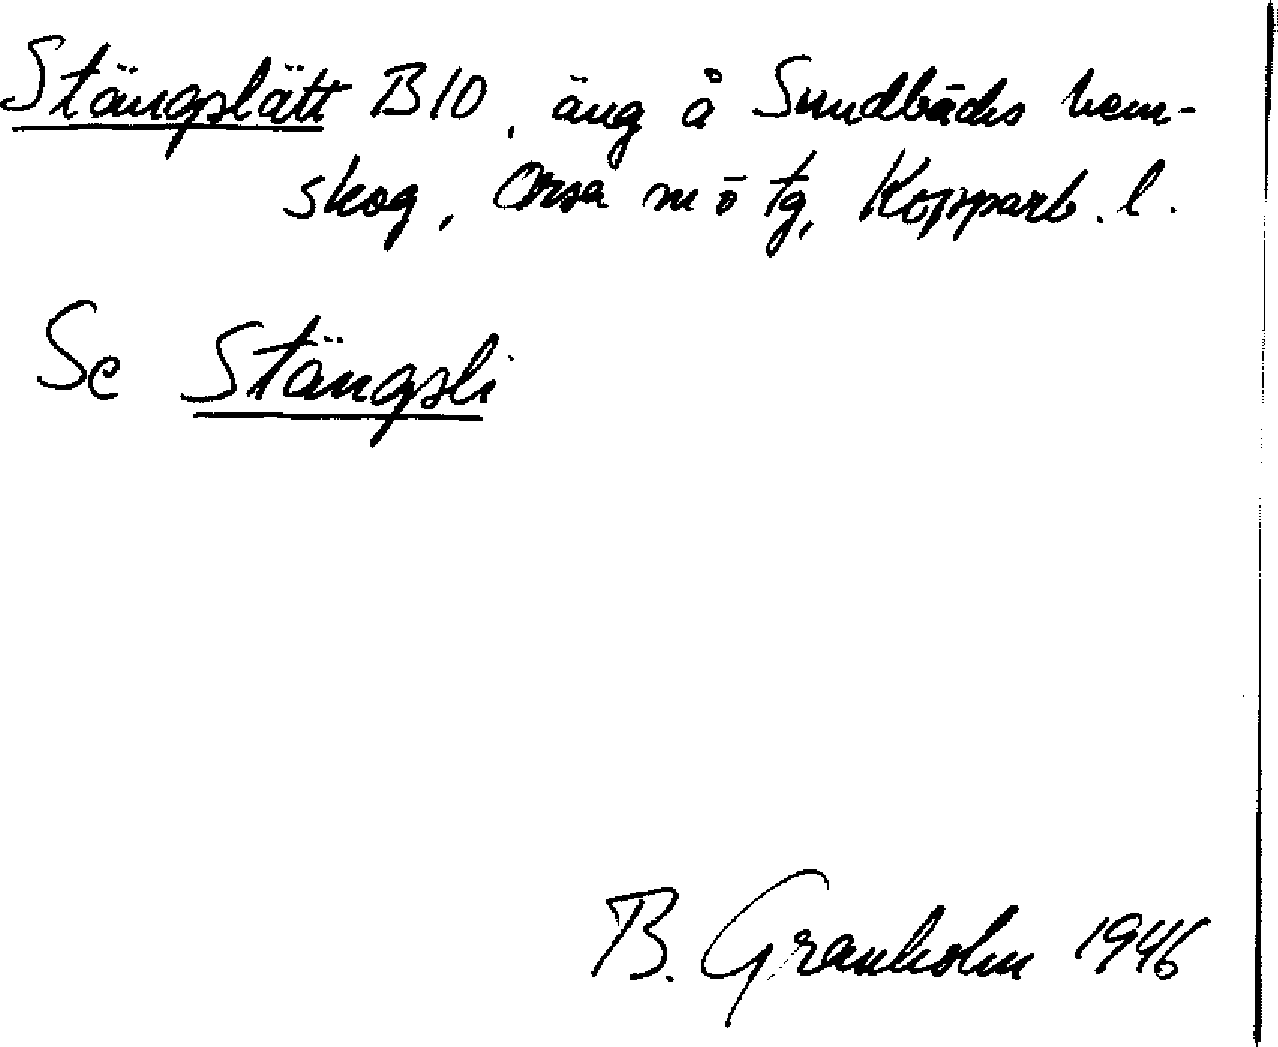 Stängslätt B10, äng å Sundbäcks hem-
skog, Orsa m o tg, Kopparb. l.
Se Stängsli
B. Granholm 1946